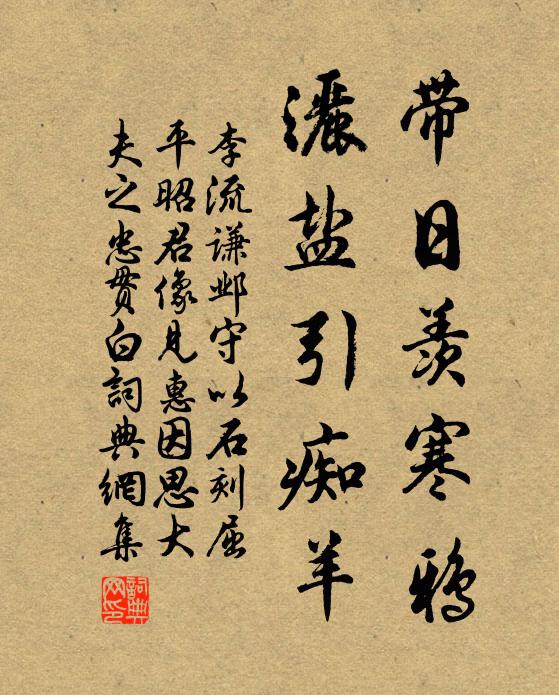 带日羡寒鸦
灑盐引痴羊
李流谦邺守以石刻屈
平昭君像见惠因思大
夫之忠贯白詞典網集
詞典
网印